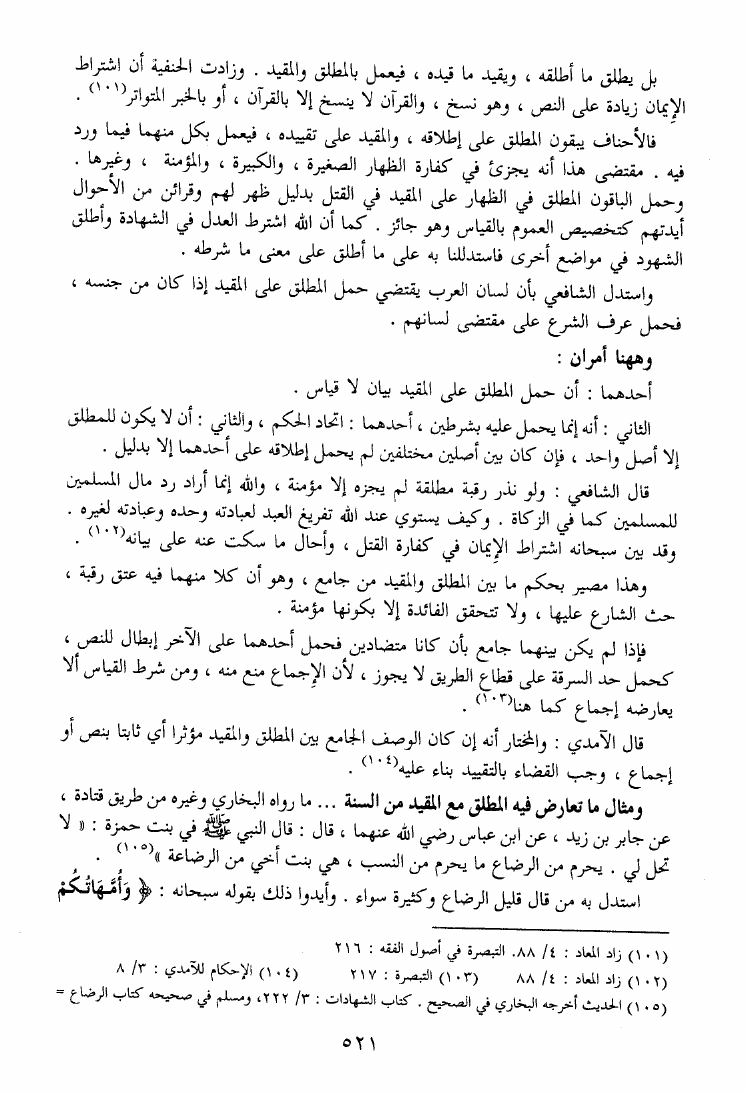 بل يطلق ما أطلقه ، ويقيد ما قيده ، فيعمل بالمطلق والمقيد . وزادت الحنفية أن اشتراط
الإيمان زيادة على النص ، وهو نسخ ، والقرآن لا ينسخ إلا بالقرآن ، أو بالخبر المتواتر(١٠١) .
فالأحناف يبقون المطلق على إطلاقه ، والمقيد على تقييده ، فيعمل بكل منهما فيما ورد
فيه . مقتضى هذا أنه يجزئ في كفارة الظهار الصغيرة ، والكبيرة ، والمؤمنة ، وغيرها .
وحمل الباقون المطلق في الظهار على المقيد في القتل بدليل ظهر لهم وقرائن من الأحوال
أيدتهم كتخصيص العموم بالقياس وهو جائز . كما أن الله اشترط العدل في الشهادة وأطلق
الشهود في مواضع أخرى فاستدللنا به على ما أطلق على معنى ما شرطه .
واستدل الشافعي بأن لسان العرب يقتضي حمل المطلق على المقيد إذا كان من جنسه ،
فحمل عرف الشرع على مقتضى لسانهم .
وههنا أمران :
أحدهما : أن حمل المطلق على المقيد بيان لا قياس .
الثاني : أنه إنما يحمل عليه بشرطين ، أحدهما : اتحاد الحكم ، والثاني : أن لا يكون للمطلق
إلا أصل واحد ، فإن كان بين أصلين مختلفين لم يحمل إطلاقه على أحدهما إلا بدليل .
قال الشافعي : ولو نذر رقبة مطلقة لم يجزه إلا مؤمنة ، والله إنما أراد رد مال المسلمين
للمسلمين كما في الزكاة . وكيف يستوي عند الله تفريغ العبد لعبادته وحده وعبادته لغيره .
وقد بين سبحانه اشتراط الإيمان في كفارة القتل ، وأحال ما سكت عنه على بيانه(١٠٢) .
وهذا مصير بحكم ما بين المطلق والمقيد من جامع ، وهو أن كلا منهما فيه عتق رقبة ،
حث الشارع عليها ، ولا تتحقق الفائدة إلا بكونها مؤمنة .
فإذا لم يكن بينهما جامع بأن كانا متضادين فحمل أحدهما على الآخر إبطال للنص ،
كحمل حد السرقة على قطاع الطريق لا يجوز ، لأن الإجماع منع منه ، ومن شرط القياس ألا
يعارضه إجماع كما هنا(١٠٣) .
قال الآمدي : والمختار أنه إن كان الوصف الجامع بين المطلق والمقيد مؤثرا أي ثابتا بنص أو
إجماع ، وجب القضاء بالتقييد بناء عليه(١٠٤) .
ومثال ما تعارض فيه المطلق مع المقيد من السنة ... ما رواه البخاري وغيره من طريق قتادة ،
عن جابر بن زيد ، عن ابن عباس رضي الله عنهما ، قال : قال النبي ﷺ في بنت حمزة : « لا
تحل لي . يحرم من الرضاع ما يحرم من النسب ، هي بنت أخي من الرضاعة »(١٠٥) .
استدل به من قال قليل الرضاع وكثيرة سواء . وأيدوا ذلك بقوله سبحانه : ﴿ وَأُمَّهَاتُكُمْ
(١٠١) زاد المعاد : ٤/ ٨٨. التبصرة في أصول الفقه : ٢١٦
(١٠٢) زاد المعاد : ٤/ ٨٨ (١٠٣) التبصرة : ٢١٧ (١٠٤) الإحكام للآمدي : ٣/ ٨
(١٠٥) الحديث أخرجه البخاري في الصحيح . كتاب الشهادات : ٣/ ٢٢٢، ومسلم في صحيحه كتاب الرضاع =
٥٢١